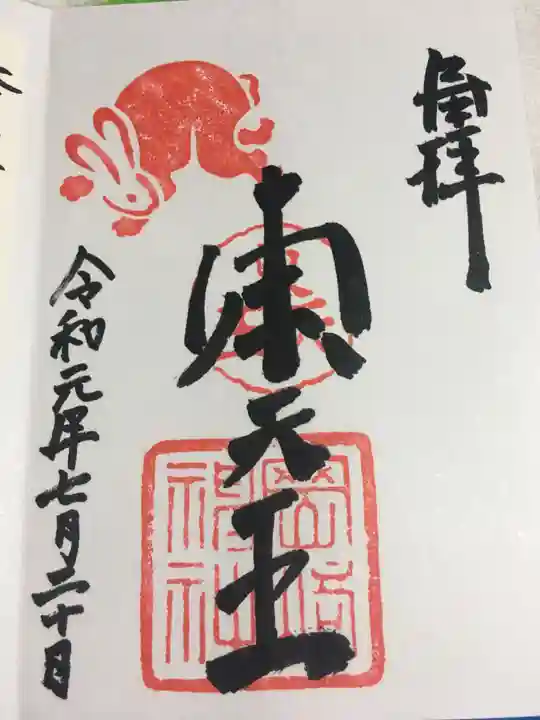 奉拝
東天王
岡崎
神社
令和元年七月二十日